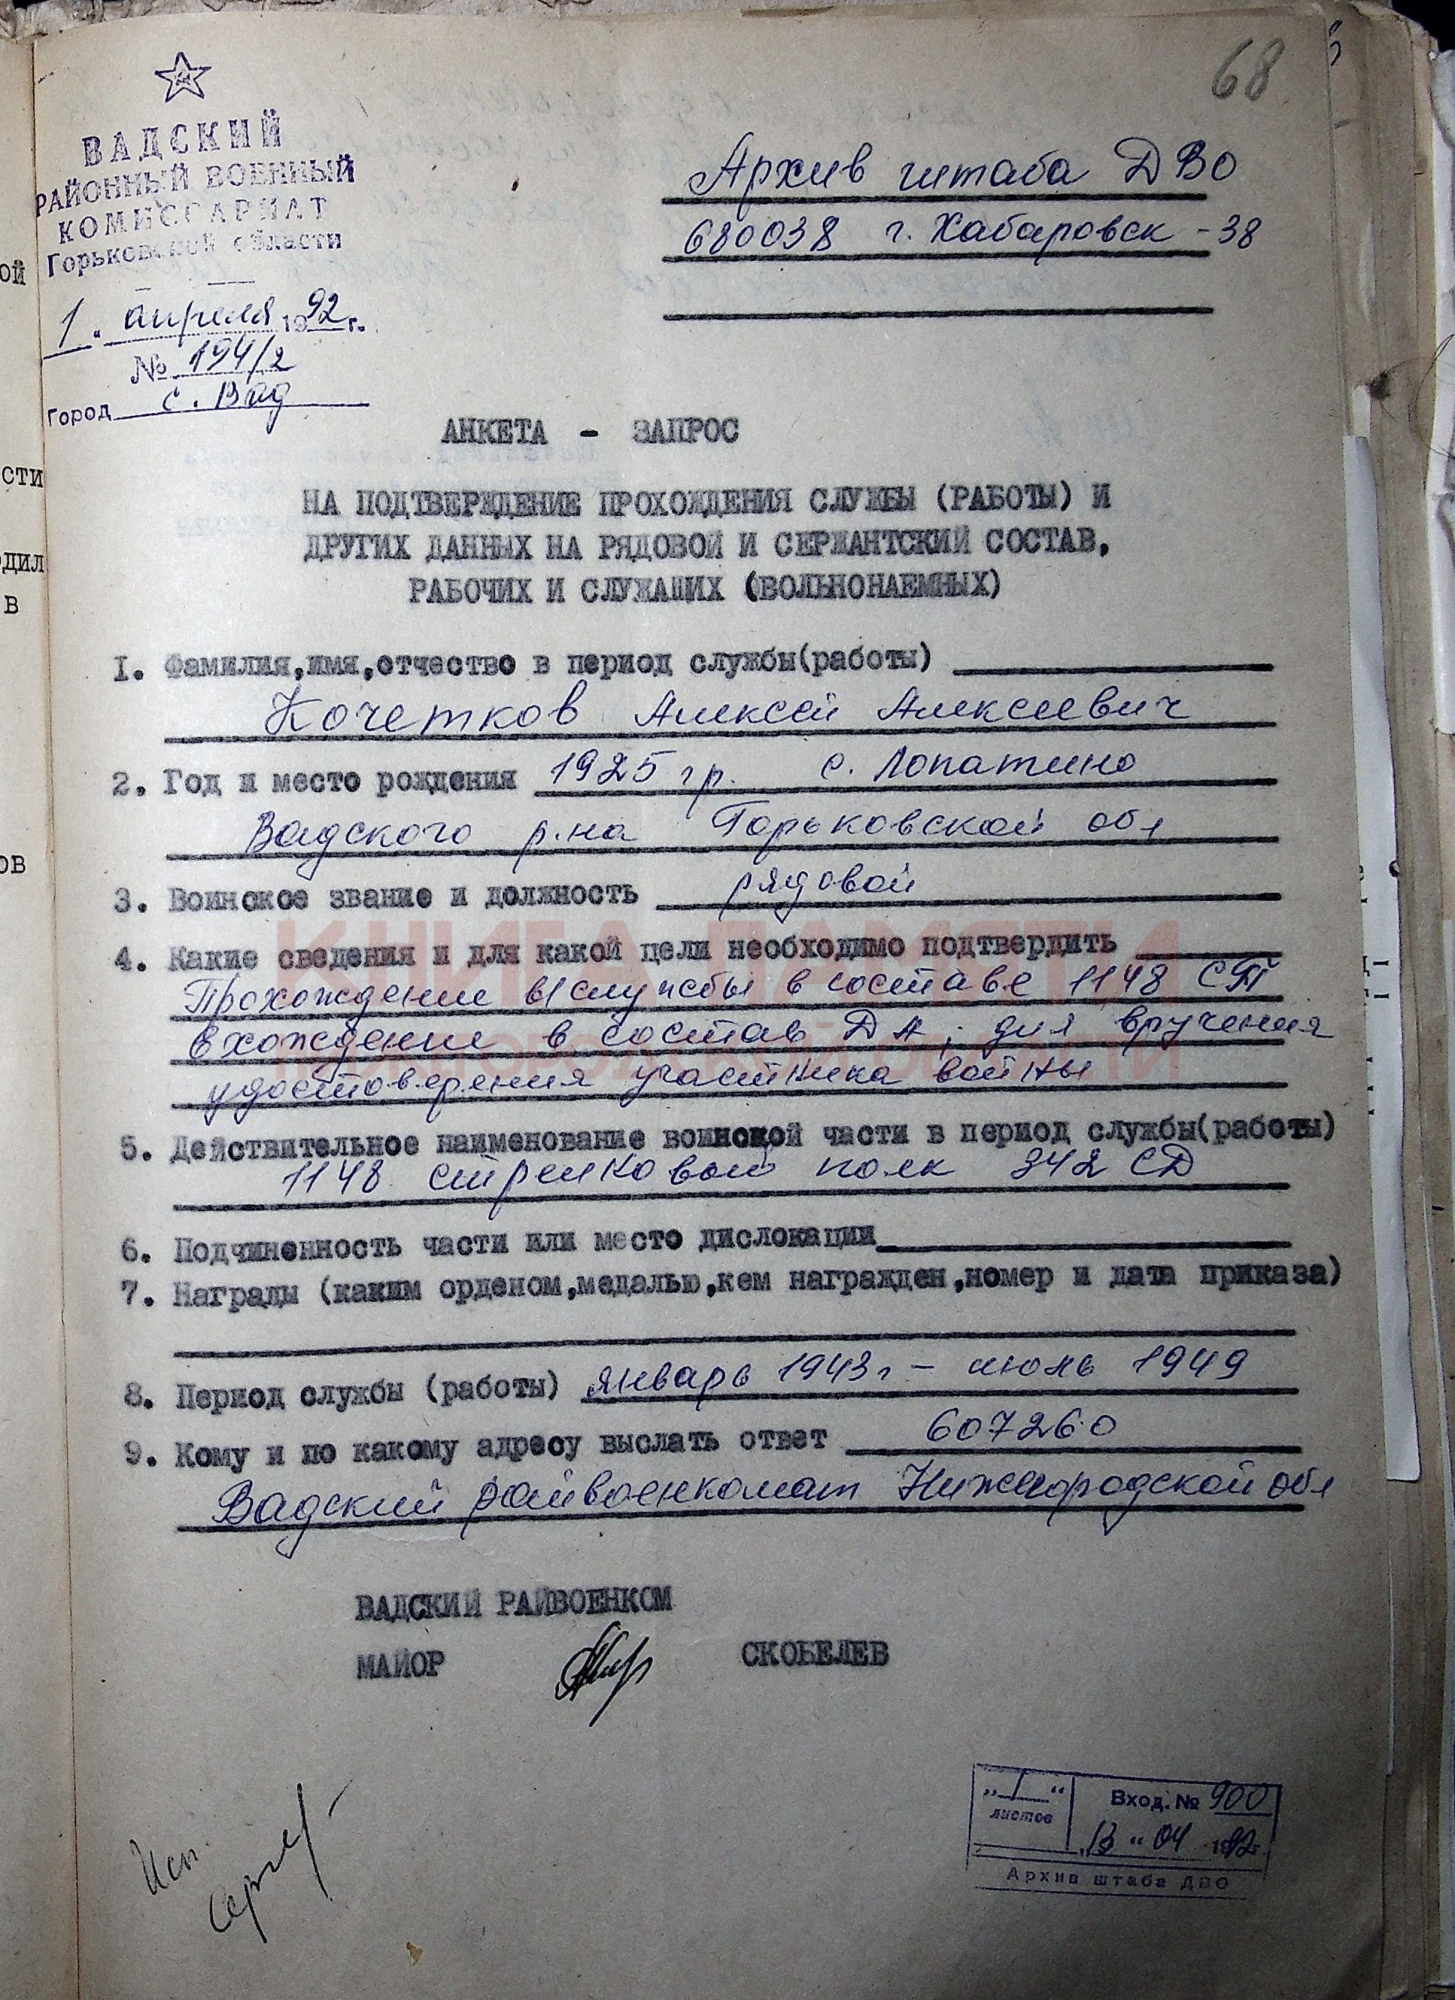 68
ВАДСКИЙ
РАЙОННЫЙ ВОЕННЫЙ
КОМИССАРИАТ
Горьковской области
1 " апреля 1992 г.
№ 194/2
Город с. Вад
Архив штаба ДВО
680038 г. Хабаровск - 38
АНКЕТА - ЗАПРОС
НА ПОДТВЕРЖДЕНИЕ ПРОХОЖДЕНИЯ СЛУЖБЫ (РАБОТЫ) И
ДРУГИХ ДАННЫХ НА РЯДОВОЙ И СЕРЖАНТСКИЙ СОСТАВ,
РАБОЧИХ И СЛУЖАЩИХ (ВОЛЬНОНАЕМНЫХ)
1. Фамилия,имя,отчество в период службы(работы)
Кочетков Алексей Алексеевич
2. Год и место рождения 1925 гр. с. Лопатино
Вадского р.на Горьковской обл
3. Воинское звание и должность рядовой
4. Какие сведения и для какой цели необходимо подтвердить
Прохождение в/службы в составе 1148 СП
вхождение в состав ДА, для вручения
удостоверения участника войны
5. Действительное наименование воинской части в период службы(работы)
1148 стрелковый полк 342 СД
6. Подчиненность части или место дислокации
7. Награды (каким орденом,медалью,кем награжден,номер и дата приказа)
8. Период службы (работы) январь 1943 г - июль 1949
9. Кому и по какому адресу выслать ответ 607260
Вадский райвоенкомат Нижегородской обл
ВАДСКИЙ РАЙВОЕНКОМ
МАЙОР СКОБЕЛЕВ
"1" листов
Вход. № 900
"13" 04 1992г.
Архив штаба ДВО
Исп.
ой
сти
одил
в
ов